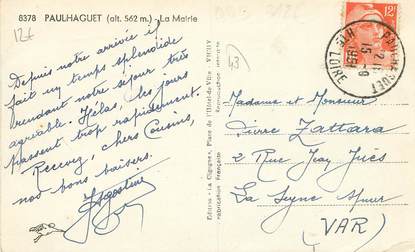 8378 PAULHAGUET (alt. 562 m.) - La Mairie
12€
Depuis notre arrivée il
fait un temps splendide
rendant notre séjour très
agréable. Hélas, les jours
passent trop rapidement.
Recevez, chers Cousins,
nos bons baisers.
Edition "La Cigogne", Place de l'Hôtel-de-Ville - VICHY
Fabrication Française
43
12F
PAULHAGUET
HTE LOIRE
Madame et Monsieur
Pierre Zattara
2 Rue Jean Juès
La Seyne s/mer
(VAR)